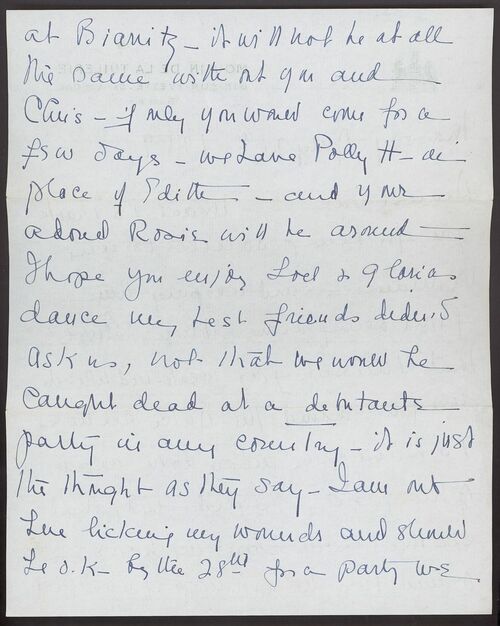 at Biarritz – it will not be at all
the same without you and
Chris – if only you would come for a
few days – we have Polly H – in
place of Edith – and your
adored Rosie will be around –
I hope you enjoy Loel & Glorias
dance my best friends didn't
ask us, not that we would be
caught dead at a debutants
party in any country – it is just
the thought as they say – I am out
here licking my wounds and should
be O.K – by the 28th for a party we